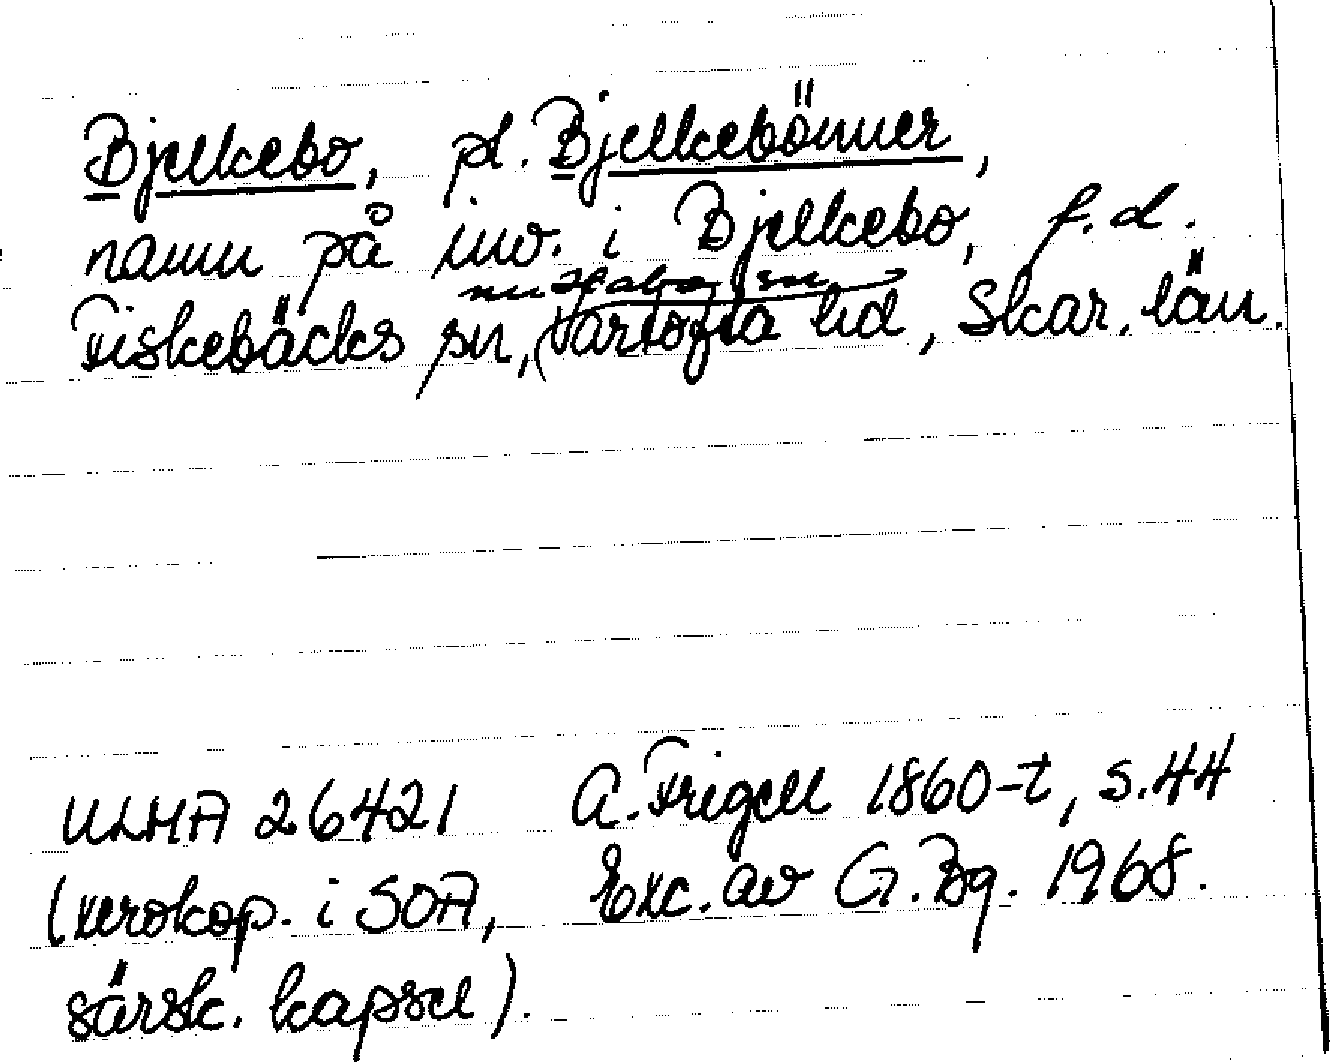 Bjelkebo, pl. Bjelkebönner,
namn på inv. i Bjelkebo, f.d.
nu Habo sn
Fiskebäcks sn, (Vartofta hd, Skar. län.
ULMA 26421 A. Frigell 1860-t, s. 44
(xerokop. i SOA, Exc. av G. Bg. 1968.
särsk. kapsel).